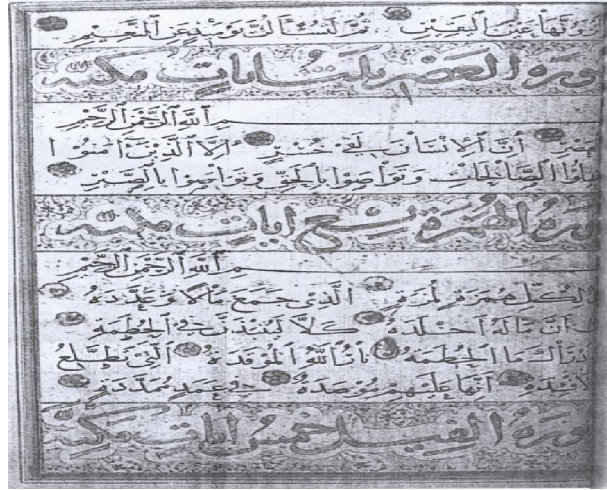 لترونها عين اليقين ثم لتسئلن يومئذ عن النعيم
سورة العصر ثلث ايات مكية
م الله الرحمن الرحيم
عصر ان الانسان لفي خسر الا الذين امنوا
وعملوا الصالحات وتواصوا بالحق وتواصوا بالصبر
سورة الهمزة تسع ايات مكية
م الله الرحمن الرحيم
لكل همزة لمزة الذي جمع مالا وعدده
ان ماله اخلده كلا لينبذن في الحطمة
ادراك ما الحطمة نار الله الموقدة التي تطلع
الافئدة انها عليهم موصدة في عمد ممددة
سورة الفيل خمس ايات مكية